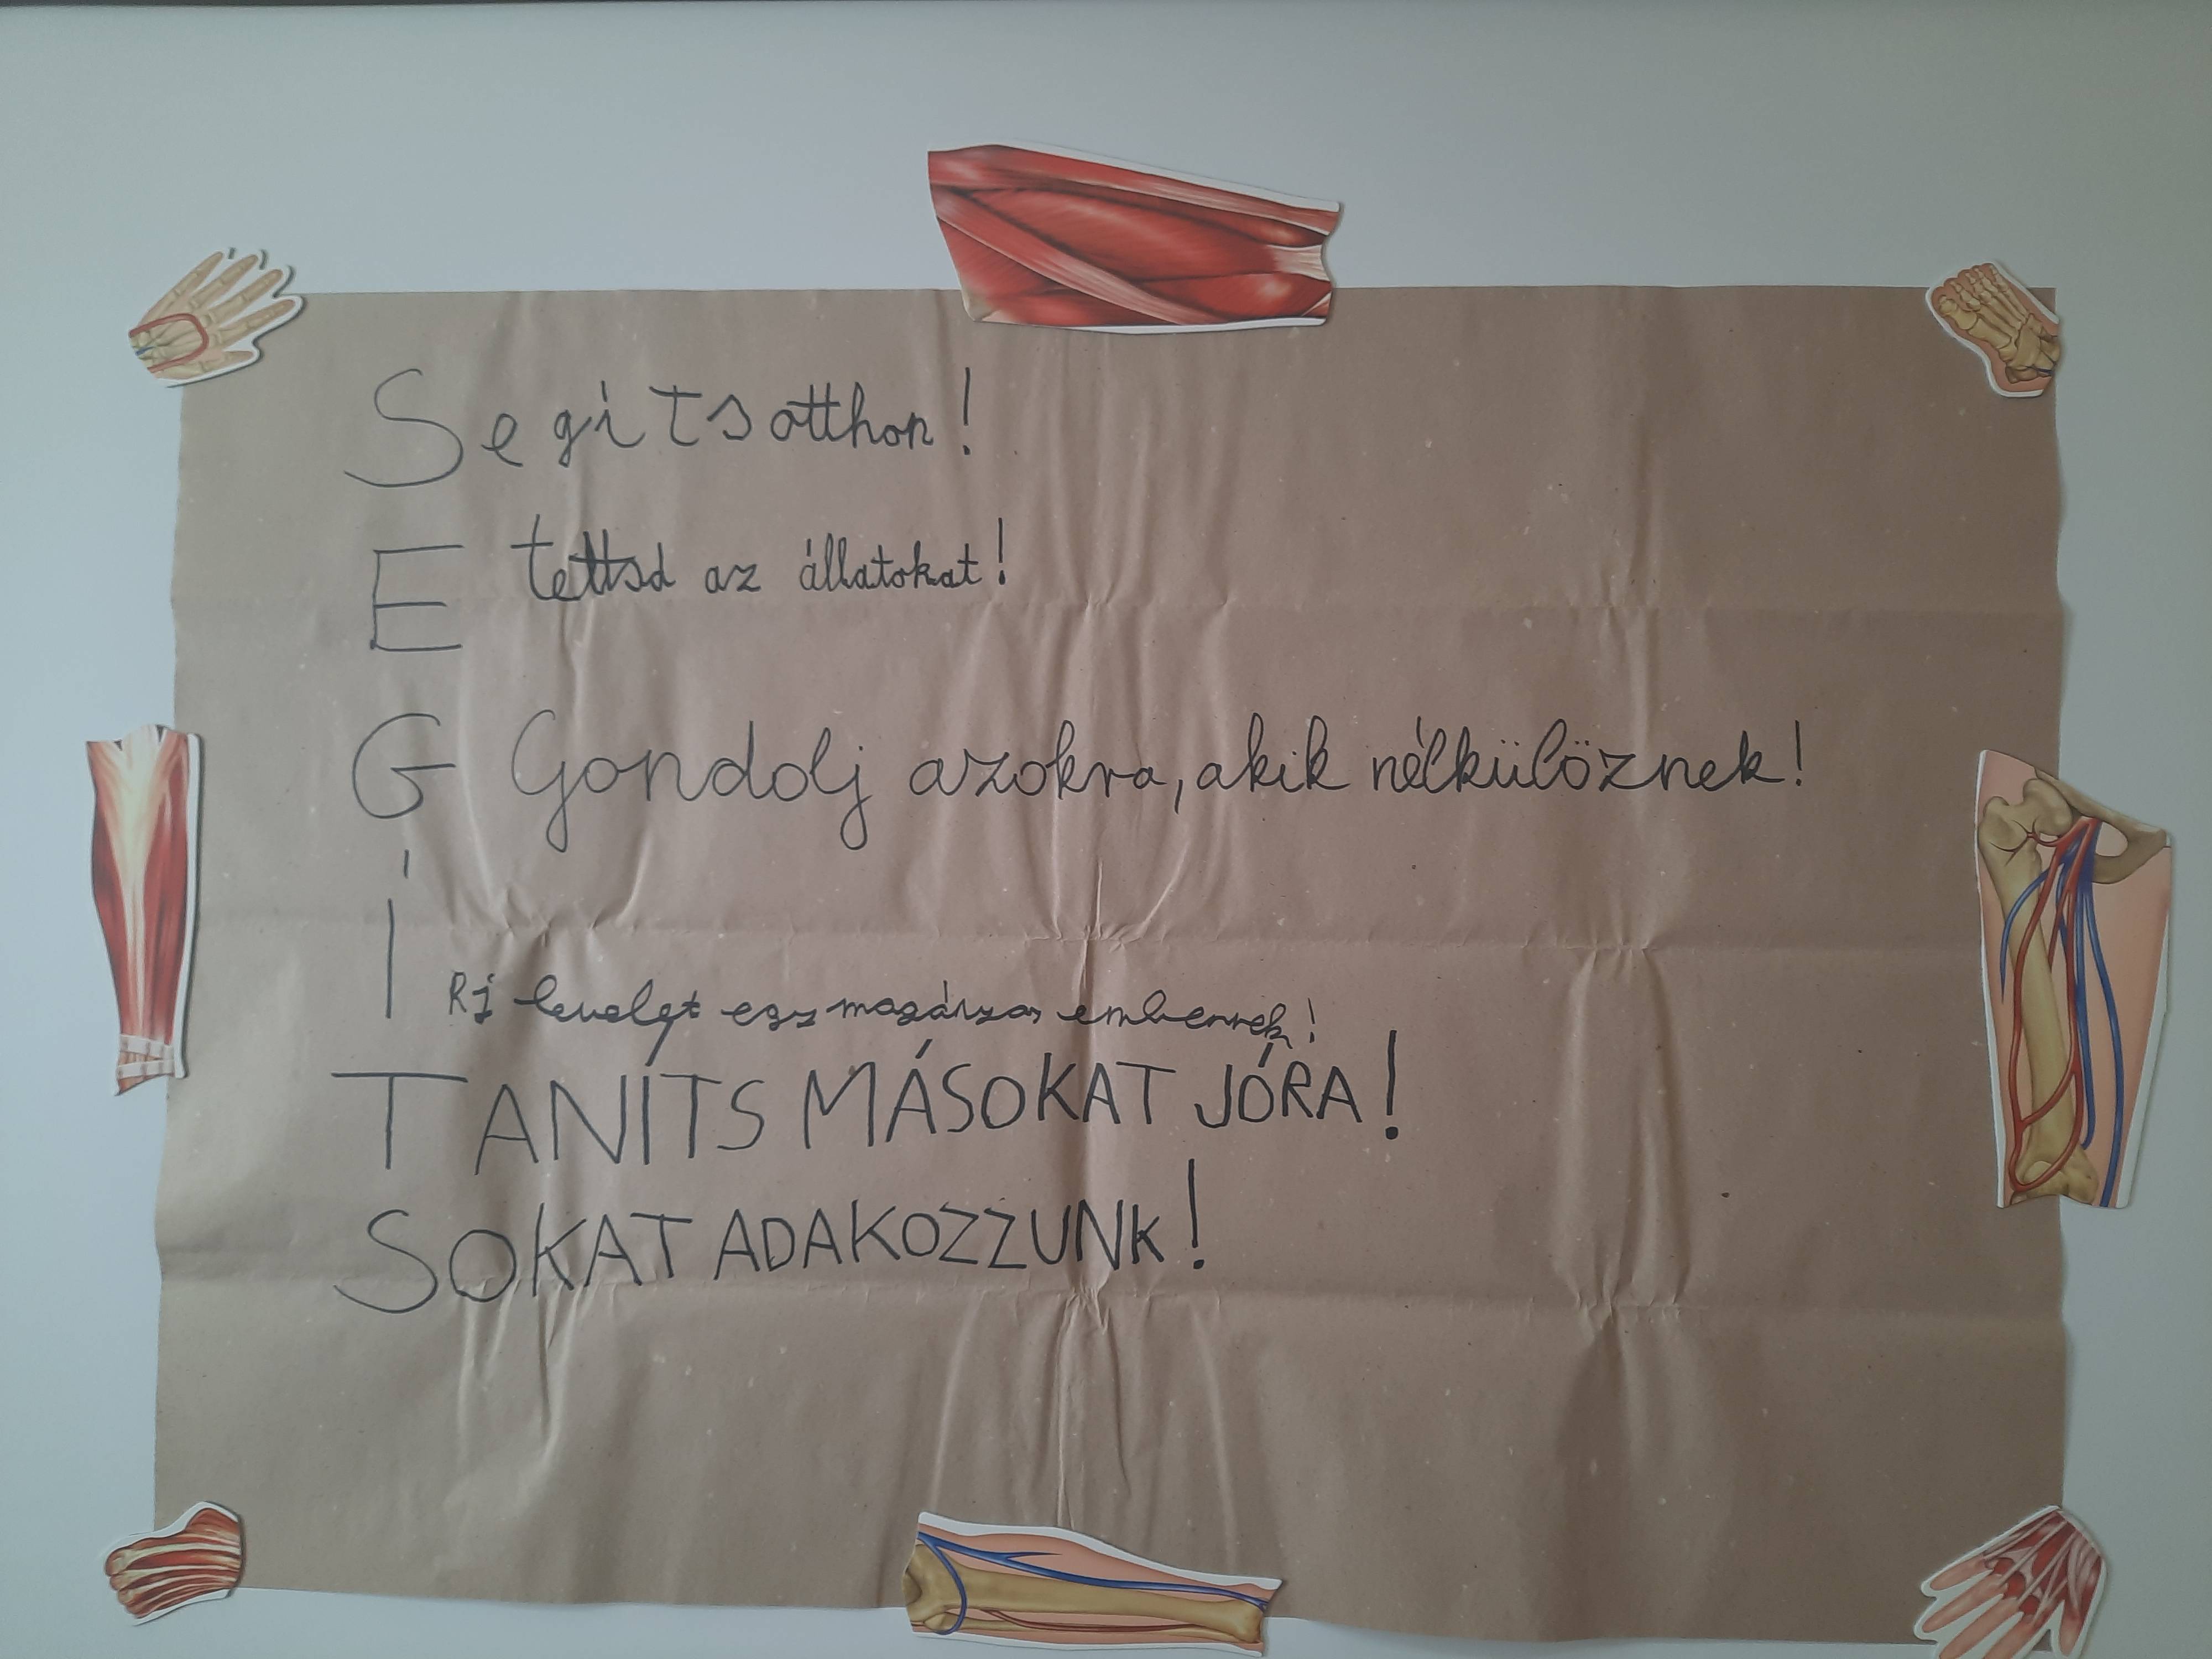 Segits otthon!
E tettsd az állatokat!
G Gondolj azokra, akik nélkülöznek!
Í Rj levelet egy magányos embernek!
TANÍTS MÁSOKAT JÓRA!
SOKAT ADAKOZZUNK!